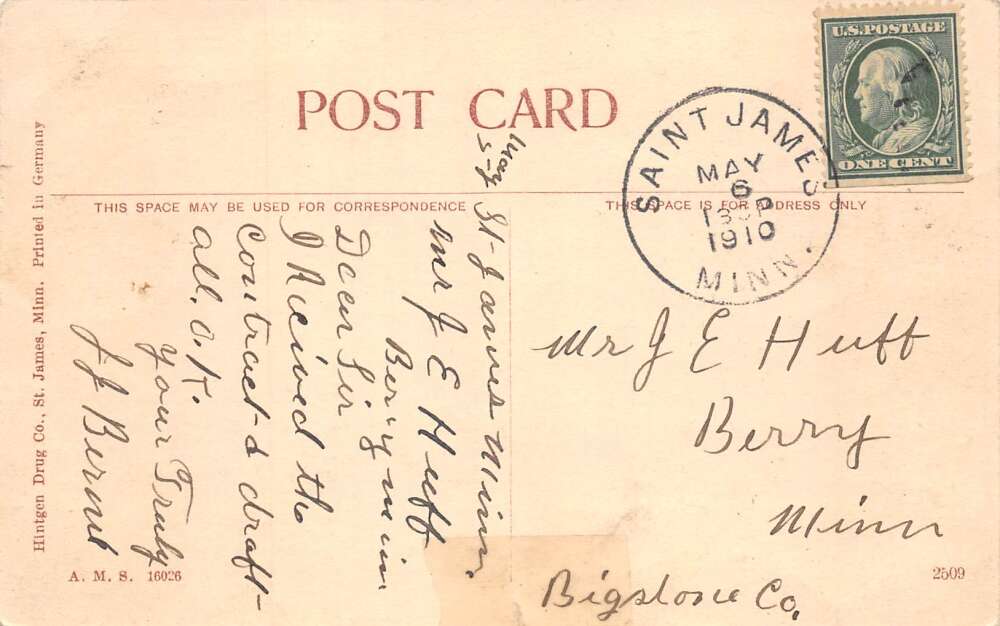 POST CARD
U.S.POSTAGE
ONE CENT
SAINT JAMES
MAY
6
1910
MINN.
THIS SPACE MAY BE USED FOR CORRESPONDENCE
THIS SPACE IS FOR ADDRESS ONLY
May
5-
St-James Minn.
Mr J E Huff
Berry Minn
Dear Sir
I Recived the
Contract & draft-
all. O.K.
Your Truly
J J
Mr J E Huff
Berry
Minn
Bigstone Co.
Hintgen Drug Co., St. James, Minn. Printed in Germany
A. M. S. 16026
2509